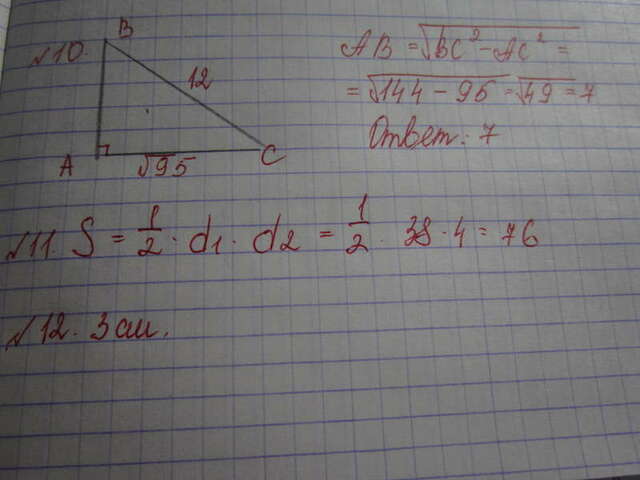 №10.
B
12
A
√95
C
AB = √BC² - AC² =
= √144 - 95 = √49 = 7
Ответ: 7
№11. S = 1/2 · d1 · d2 = 1/2 · 38 · 4 = 76
№12. 3 см.